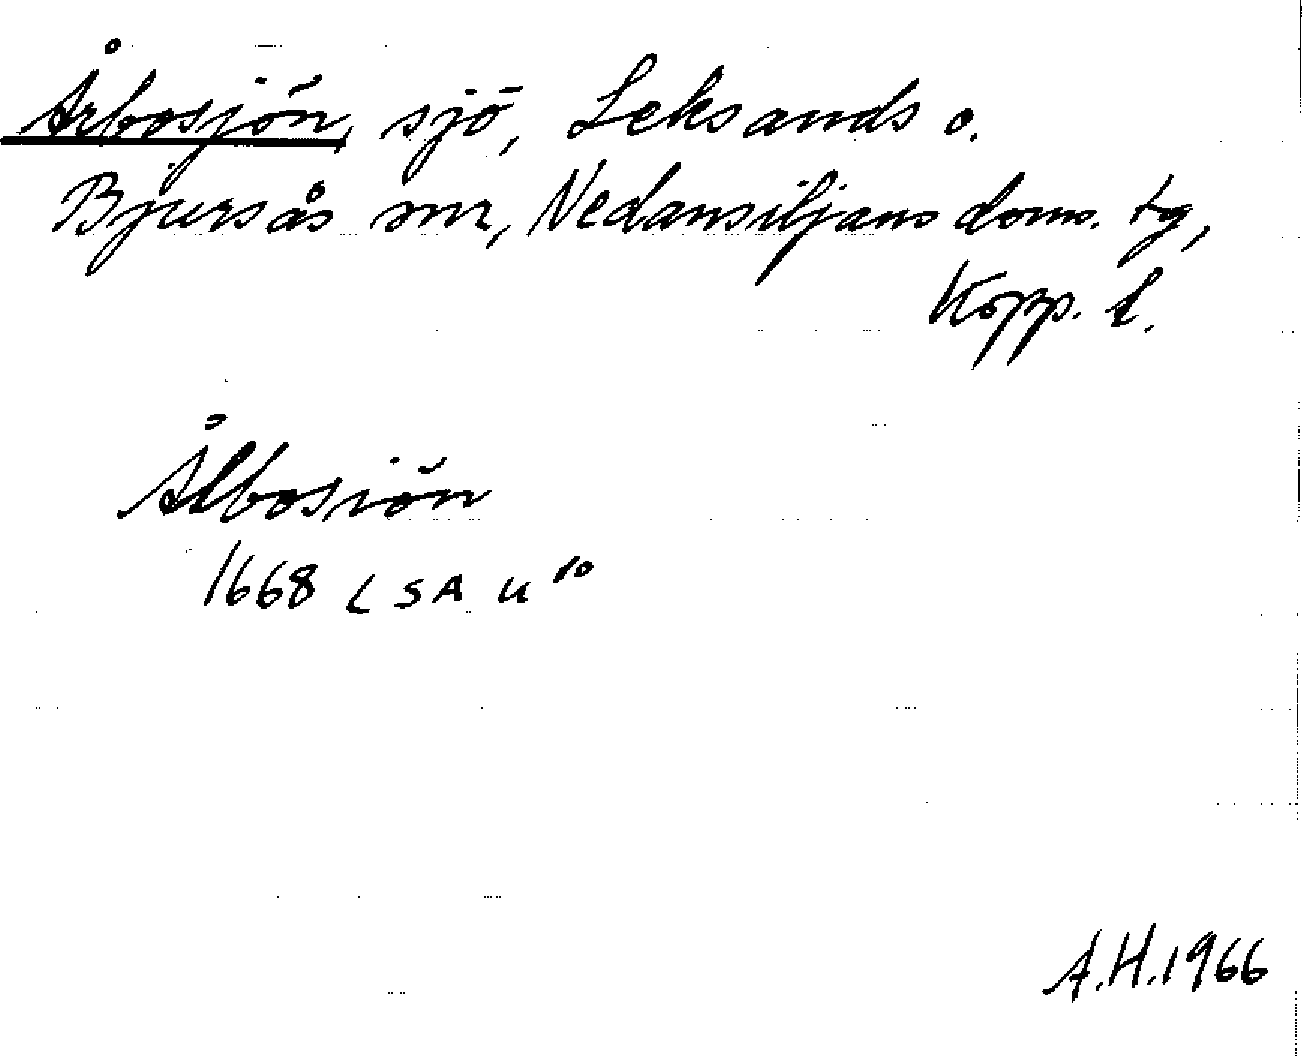 Årbosjön, sjö, Leksands o.
Bjursås snr, Nedansiljans doms. tg,
Kopp. l.
Ålbosiön
1668 LSA U 10
A.H. 1966